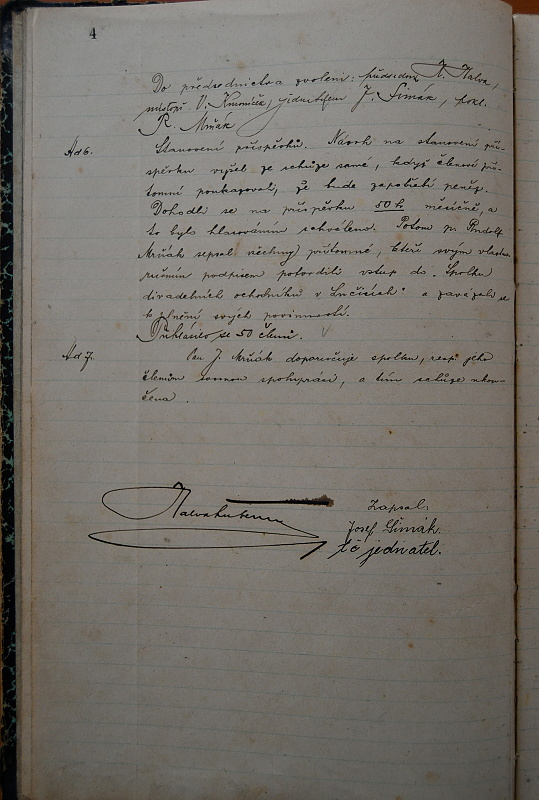 4
Do předsednictva zvoleni: předsedou A. Kalva,
místopř. V. Kmoníček, jednatelem J. Šimák, pokl.
R. Mrňák
Ad 6. Stanovení příspěvků. Návrh na stanovení pří-
spěvku vyšel ze schůze samé, když členové pří-
tomní poukazovali, že bude zapotřebí peněz.
Dohodli se na příspěvku 50 h měsíčně, a
to bylo hlasováním schváleno. Potom p. Rudolf
Mrňák sepsal všechny přítomné, kteří svým vlasto-
ručním podpisem potvrdili vstup do "Spolku
divadelních ochotníků v " a zavázali se
k plnění svých povinností.
Přihlásilo se 50 členů.
Ad 7. Pan J. Mrňák doporučuje spolku, resp. jeho
členům svornou spolupráci, a tím schůze ukon-
čena.
Zapsal:
Josef Šimák.
tč jednatel.